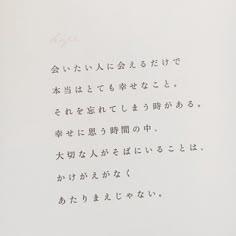 会いたい人に会えるだけで
本当はとても幸せなこと。
それを忘れてしまう時がある。
幸せに思う時間の中、
大切な人がそばにいることは、
かけがえがなく
あたりまえじゃない。